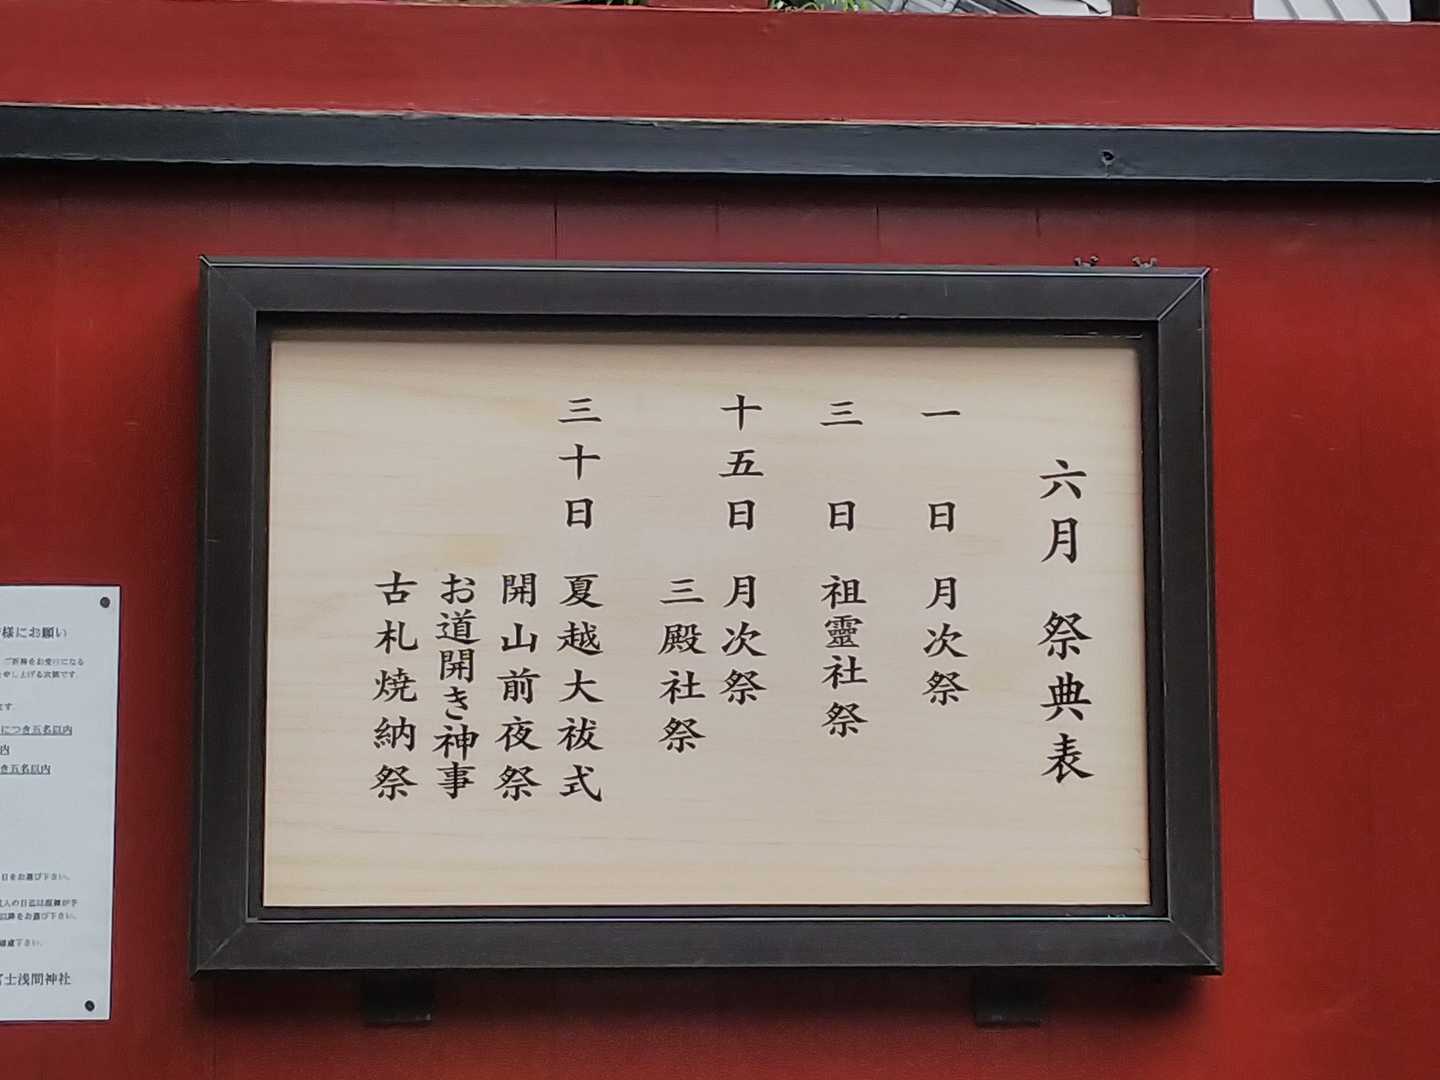 六月 祭典表
一日 月次祭
三日 祖靈社祭
十五日 月次祭
三殿社祭
三十日 夏越大祓式
開山前夜祭
お道開き神事
古札焼納祭
様にお願い
ご祈祷をお受けになる
申し上げる次第です。
ます。
につき五名以内
内
き五名以内
日をお選び下さい。
以降をお選び下さい。
下さい。
士浅間神社